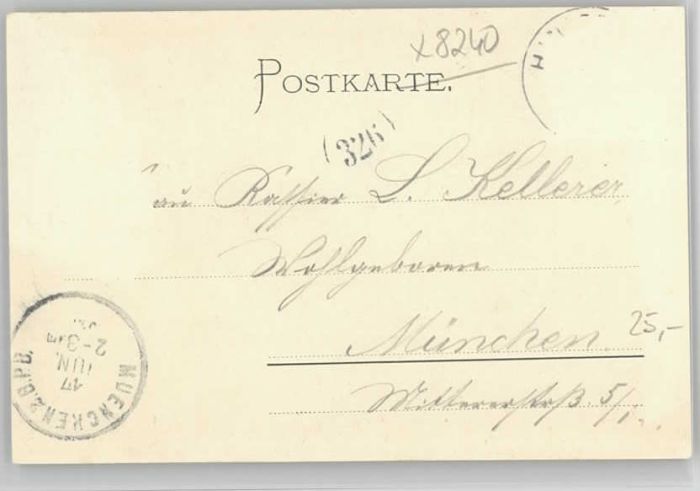 x8240
POSTKARTE.
(326)
an Kassier L. Kellerer
Wohlgeboren
München.
25,-
Mittererstraß. 5/I.
MUENCHEN 2. B.P.B.
17
JUN.
2-3